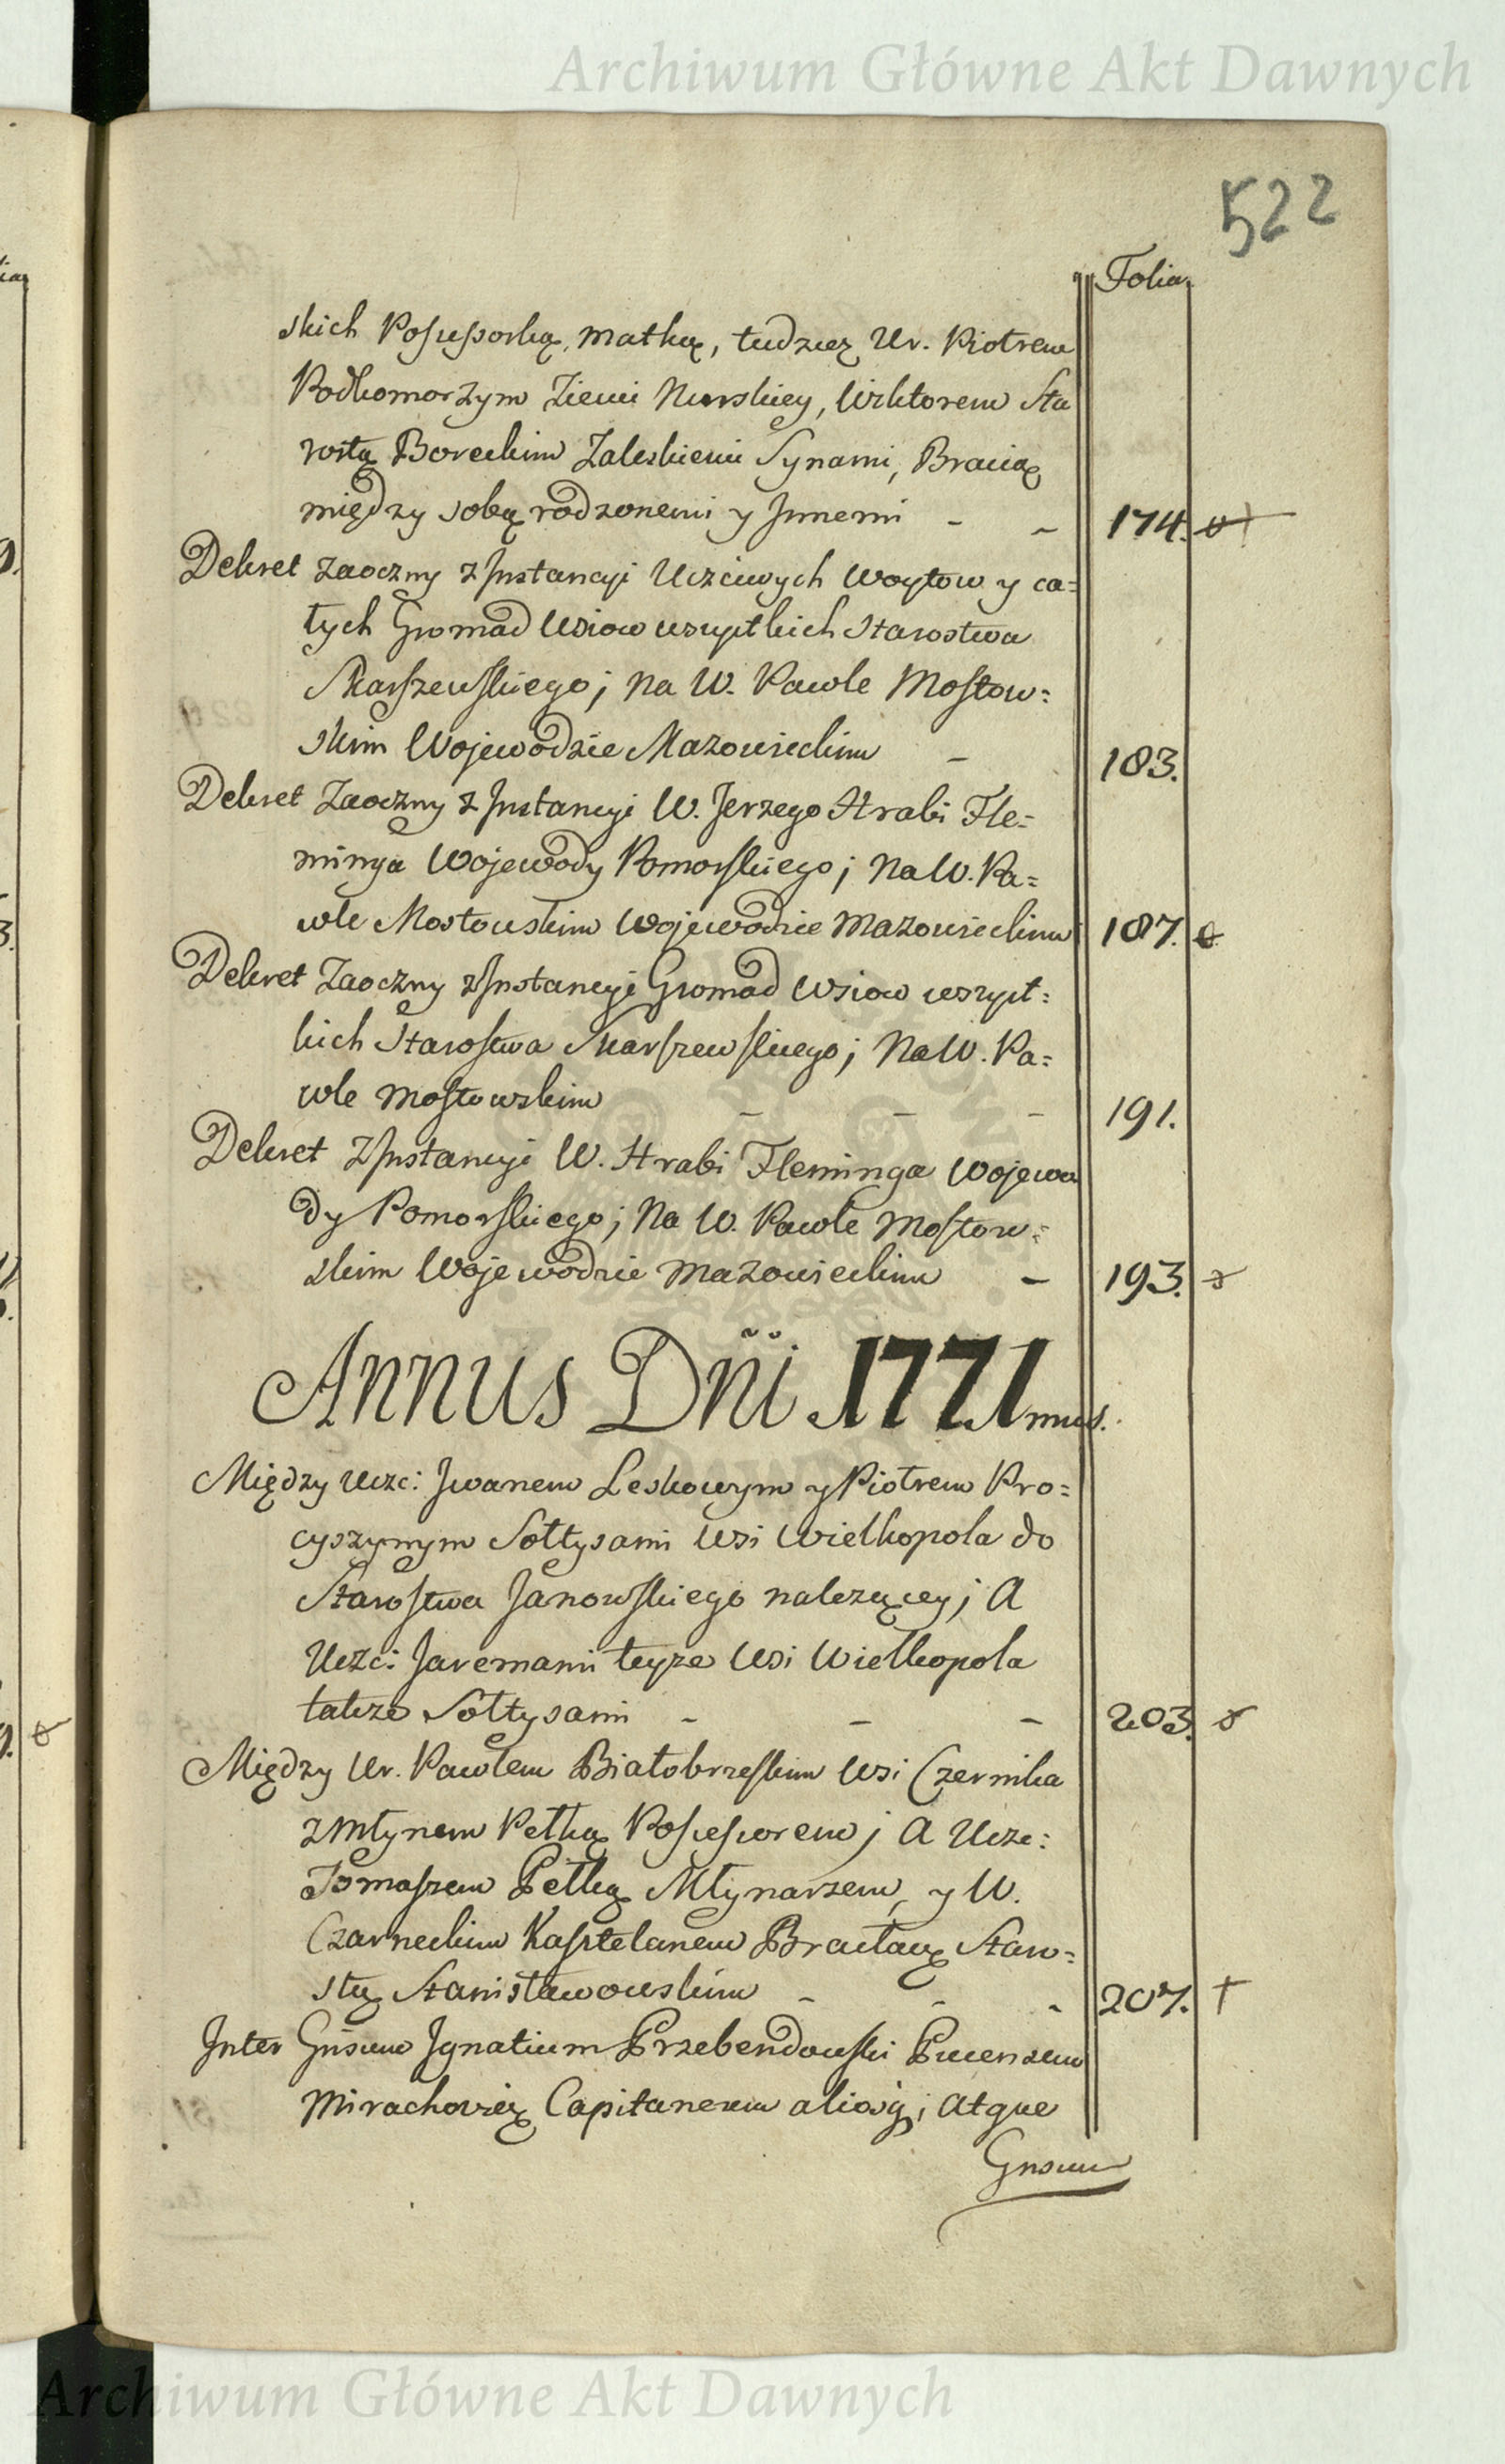 Archiwum Główne Akt Dawnych
522
Folia
skich Possessorką, matką, tudziez Ur. Piotrem
Podkomorzym Ziemi Nurskiey, Wiktorem Sta
rostą Boreckim Zaleskiemi Synami, Bracią
między sobą rodzonemi y Jnnemi - - 174.
Dekret zaoczny z Jnstancyi Uczciwych Woytow y ca=
łych Gromad Wsiow wszystkich Starostwa
Skarszewskiego; na W. Pawle Mostow=
skim Wojewodzie Mazowieckim - 183.
Dekret Zaoczny z Jnstancyi W. Jerzego Hrabi Fle=
minga Wojewody Pomorskiego; Na W. Pa=
wle Mostowskim Wojewodzie Mazowieckim 187.
Dekret Zaoczny z Jnstancyi Gromad Wsiow wszyst=
kich Starostwa Skarszewskiego; Na W. Pa=
wle Mostowskim - - - 191.
Dekret z Jnstancyi W. Hrabi Fleminga Wojewo
dy Pomorskiego; Na W. Pawle Mostow=
skim Wojewodzie Mazowieckim - 193.
Annus Dñi 1771mus.
Między Uczc: Jwanem Leskowym y Piotrem Pro=
cyszynym Sołtysami Wsi Wielkopola do
Starostwa Janowskiego nalezącey; A
Uczc: Jaremami teyze Wsi Wielkopola
takze Sołtysami - - - 203.
Między Ur. Pawłem Białobrzeskim Wsi Czernika
z Młynem Pełką Possessorem; A Uczc:
Tomaszem Pełką Młynarzem, y W.
Czarneckim Kasztelanem Bracław Staro=
stą Stanisławowskim - - - 207. †
Jnter Gnsum Jgnatium Przebendowski Pucensem
Mirachovień Capitaneum aliosq; Atque
Gnsum
Archiwum Główne Akt Dawnych